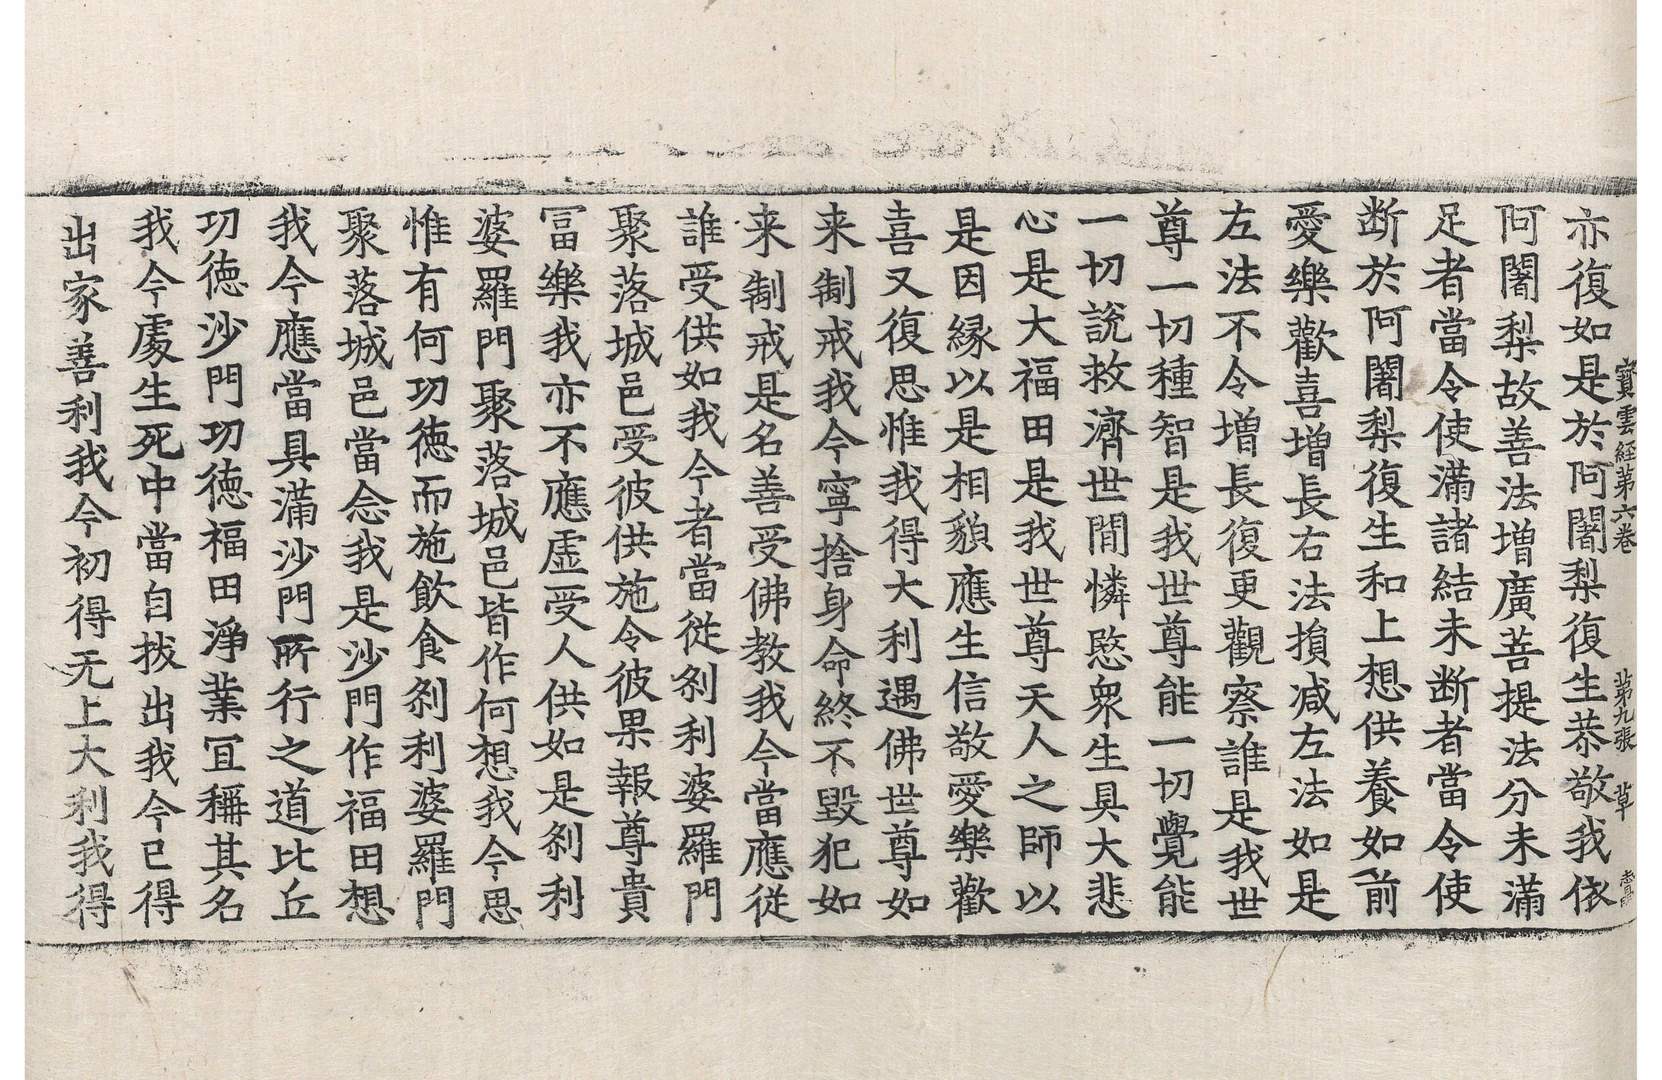 寳雲経第六巻 苐九張 草
亦復如是於阿闍梨復生恭敬我依
阿闍梨故善法増廣菩提法分未滿
足者當令使滿諸結未断者當令使
断於阿闍梨復生和上想供養如前
愛樂歡喜増長右法損减左法如是
左法不令増長復更觀察誰是我世
尊一切種智是我世尊能一切覺能
一切說救濟世間憐愍衆生具大悲
心是大福田是我世尊天人之師以
是因縁以是相貌應生信敬愛樂歡
喜又復思惟我得大利遇佛世尊如
来制戒我今寧捨身命終不毀犯如
来制戒是名善受佛教我今當應従
誰受供如我今者當従刹利婆羅門
聚落城邑受彼供施令彼果報尊貴
冨樂我亦不應虛受人供如是刹利
婆羅門聚落城邑皆作何想我今思
惟有何功徳而施飲食刹利婆羅門
聚落城邑當念我是沙門作福田想
我今應當具滿沙門所行之道比丘
功徳沙門功徳福田淨業冝稱其名
我今處生死中當自拔出我今已得
出家善利我今初得无上大利我得